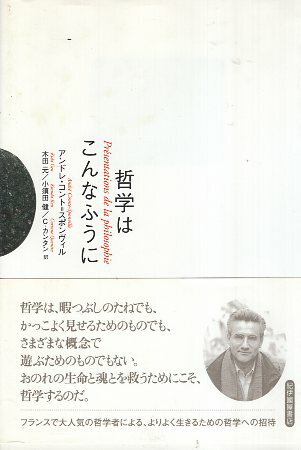 哲学は
こんなふうに
Présentations de la philosophie
アンドレ・コント=スポンヴィル
André Comte-Sponville
木田 元/小須田 健/C・カンタン 訳
哲学は、暇つぶしのたねでも、
かっこよく見せるためのものでも、
さまざまな概念で
遊ぶためのものでもない。
おのれの生命と魂とを救うためにこそ、
哲学するのだ。
フランスで大人気の哲学者による、よりよく生きるための哲学への招待
紀伊國屋書店